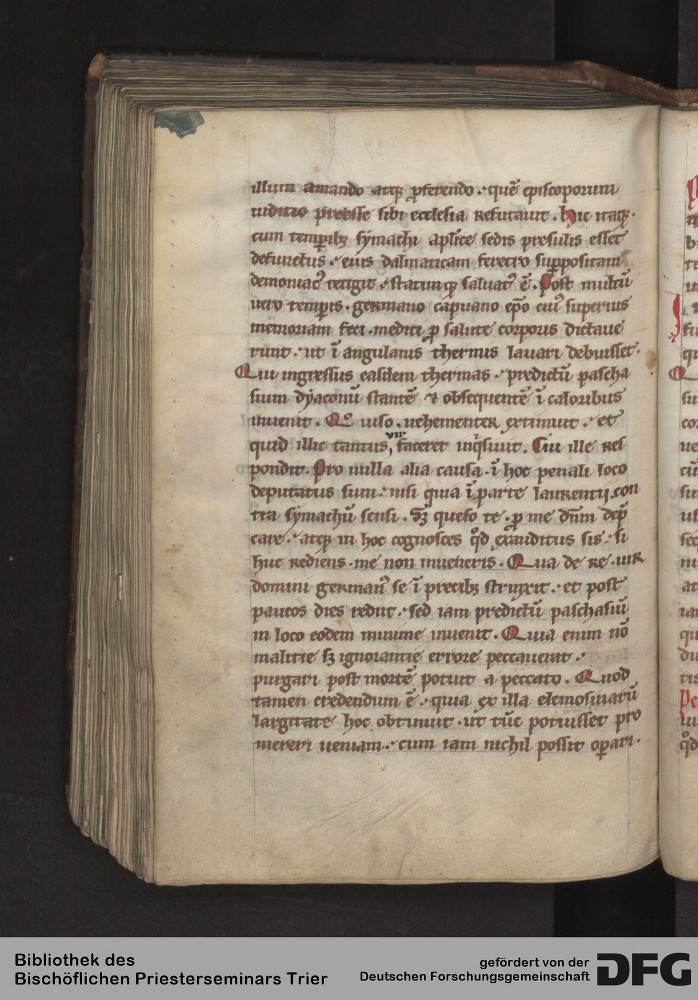 illum amando atq; p̱ferendo · quē episcoporum
iuditio preesse sibi ecclesia refutauit. Hic itaq;
cum temp̱ib; symachi aplice sedis presulis esset
defunctus · eius dalmaticam feretro suppositam
demoniac᷒ tetigit · statimq; saluat᷒ ē. Post multū
uero temp̱is · germano capuano ep̄o cui᷒ superius
memoriam feci · medici p̱ salute corporis dictaue
runt · ut ī angulanis thermis lauari debuisset ·
Qui ingressus easdem thermas · predictū pascha
sium dyaconū stantē & obsequentē ī caloribus
inuenit. Qͦ uiso · uehementer extimuit · et
quid illic tantus uir faceret inq̇siuit. Cui ille res
pondit. Pro nulla alia causa · ī hoc penali loco
deputatus sum · nisi quia ī parte laurentij con
tra symachū sensi · Sꝫ queso te · p̱ me dn̄m dep̄
care · atq; in hoc cognosces qd̄ exauditus sis · si
huc rediens · me non inueneris. Qua de re · uir
domini german᷒ se ī precib; strinxit · et post
paucos dies rediit · sed iam predictū paschasiū
in loco eodem minime inuenit. Quia enim nō
malitie sꝫ ignorantie errore peccauerat ·
purgari post mortē potuit a peccato. Quod
tamen credendum ē · quia ex illa elemosinarū
largitate hoc obtinuit · ut tūc potuisset pro
mereri ueniam · cum iam nichil possit op̱ari ·
Bibliothek des
Bischöflichen Priesterseminars Trier
gefördert von der
Deutschen Forschungsgemeinschaft
DFG